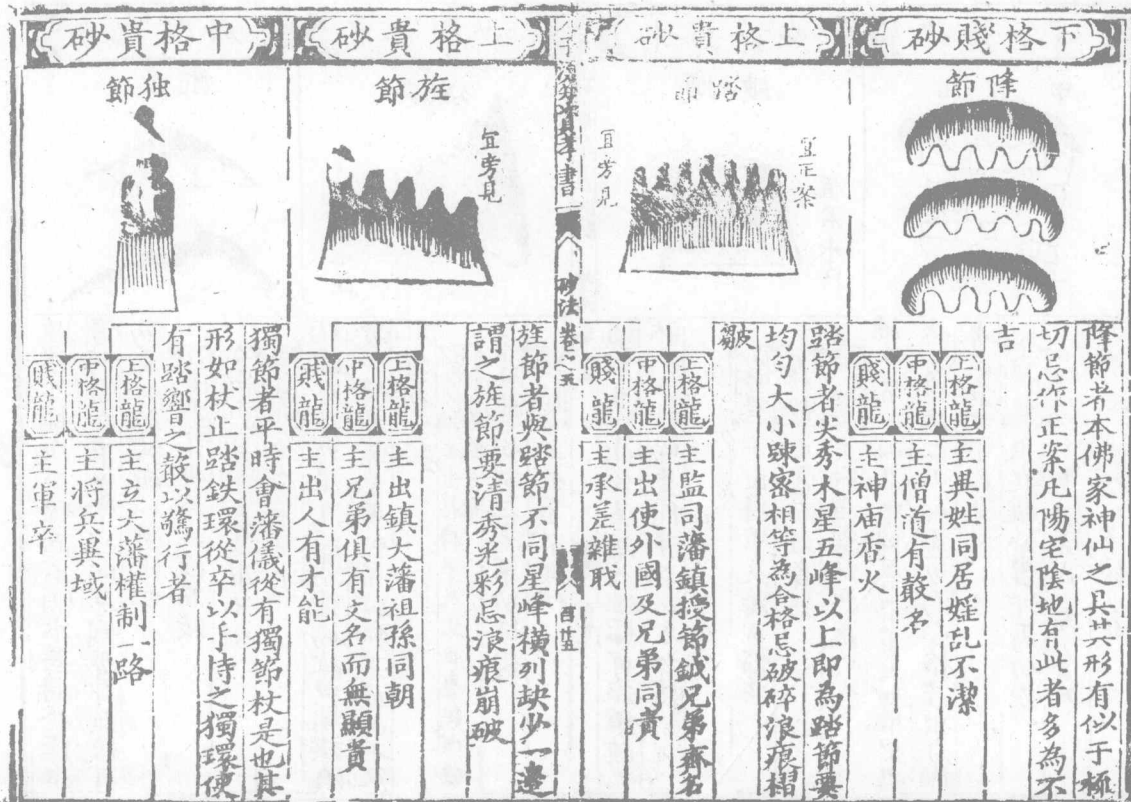 下格賤砂
降節
降節者本佛家神仙之具其形有似于極
切忌作正案凡陽宅陰地右此者多為不
吉
上格龍 主異姓同居婬乱不潔
中格龍 主僧道有聲名
賤龍 主神庙香火
上格貴砂
踏節
宜正案
宜旁見
踏節者尖秀木星五峰以上即為踏節要
均匀大小踈密相等為合格忌破碎浪痕摺
皺
上格龍 主監司藩鎮授節鉞兄弟齊名
中格龍 主出使外國及兄弟同貴
賤龍 主承差雜职
砂法 卷之五
四廿五
上格貴砂
旌節
宜旁見
旌節者與踏節不同星峰橫列缺少一邊
謂之旌節要清秀光彩忌浪痕崩破
上格龍 主出鎮大藩祖孫同朝
中格龍 主兄弟俱有文名而無顯貴
賤龍 主出人有才能
中格貴砂
独節
獨節者平時會藩儀從有獨節杖是也其
形如杖止踏鉄環從卒以手持之獨環使
有踏響之聲以驚行者
上格龍 主立大藩權制一路
中格龍 主將兵異域
賤龍 主軍卒